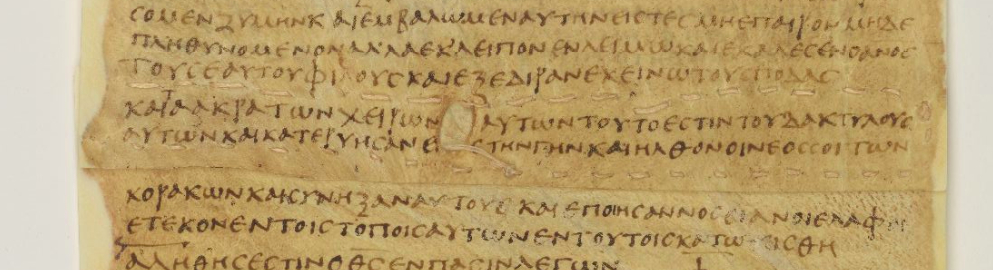 ϹΟΜΕΝ ΖΥΜΗΝ ΚΑΙ ΕΜΒΑΛΩΜΕΝ ΑΥΤΗΝ ΕΙϹ ΜΗ ΕΠΑΙΡΟΝ ΜΗΔΕ
ΠΛΗΘΥΝΟΜΕΝΟΝ ΑΛΛΑ ΕΚΛΕΙΠΟΝ ΕΝ ΛΕΙΜΩ ΚΑΙ ΕΚΑΛΕϹΕΝ Ο ΑΝΟϹ
ΤΟΥϹ ΕΑΥΤΟΥ ΦΙΛΟΥϹ ΚΑΙ ΕΞΕΔΙΡΑΝ ΕΚΕΙΝΩ ΤΟΥϹ ΠΟΔΑϹ
ΚΑΙ ΤΑ ΑΚΡΑ ΤΩΝ ΧΕΙΡΩΝ ΑΥΤΩΝ ΤΟΥΤΟ ΕϹΤΙΝ ΤΟΥ ΔΑΚΤΥΛΟΥϹ
ΑΥΤΩΝ ΚΑΙ ΚΑΤΕΡΥΗϹΑΝ ΕΙϹ ΤΗΝ ΓΗΝ ΚΑΙ ΗΛΘΟΝ ΟΙ ΝΕΟϹϹΟΙ ΤΩΝ
ΚΟΡΑΚΩΝ ΚΑΙ ϹΥΝΗΞΑΝ ΑΥΤΟΥϹ ΚΑΙ ΕΠΟΙΗϹΑΝ ΝΟϹΕΙΑΝ ΟΙ ΕΛΑΦΟΙ
ΕΤΕΚΟΝ ΕΝ ΤΟΙϹ ΤΟΠΟΙϹ ΑΥΤΩΝ ΕΝ ΤΟΥΤΟΙϹ
ΑΛΗΘΗϹ ΕϹΤΙΝ Ο ΘϹ ΕΝ ΠΑϹΙΝ ΛΕΓΩΝ